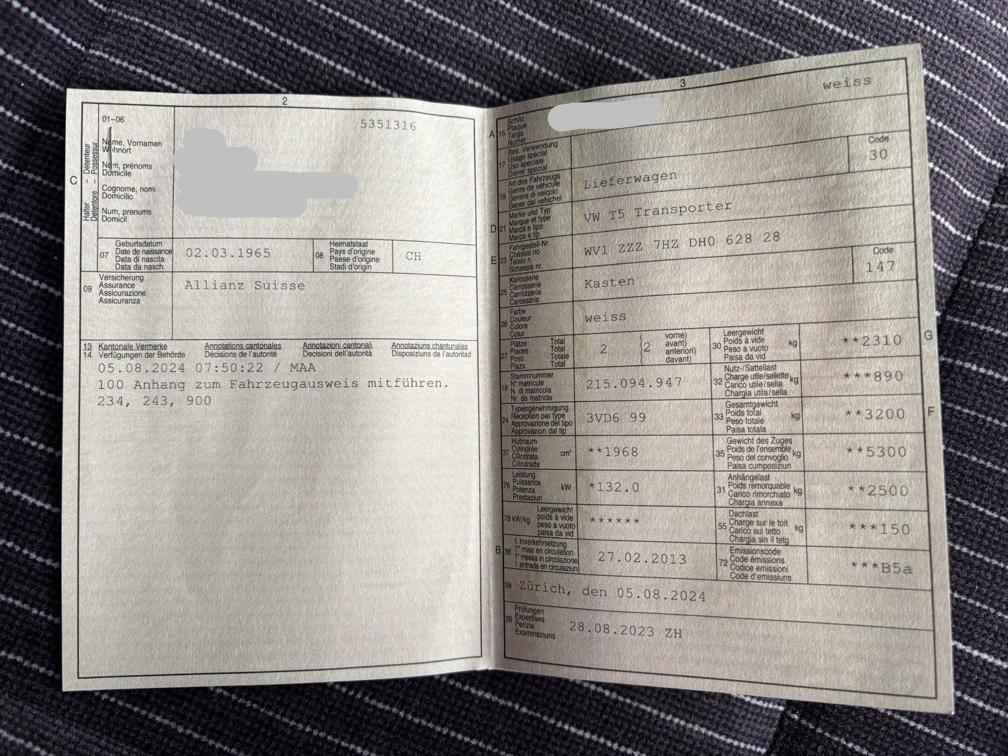 2
01-06
5351316
Halter - Détenteur
Detentore - Possessur
C
Name, Vornamen
Wohnort
Nom, prénoms
Domicile
Cognome, nomi
Domicilio
Num, prenums
Domicil
07
Geburtsdatum
Date de naissance
Data di nascita
Data da nasch.
02.03.1965
08
Heimatstaat
Pays d'origine
Paese d'origine
Stadi d'origin
CH
09
Versicherung
Assurance
Assicurazione
Assicuranza
Allianz Suisse
13 Kantonale Vermerke Annotations cantonales Annotazioni cantonali Annotaziuns chantunalas
14 Verfügungen der Behörde Décisions de l'autorité Decisioni dell'autorità Disposiziuns da l'autoritad
05.08.2024 07:50:22 / MAA
100 Anhang zum Fahrzeugausweis mitführen.
234, 243, 900
3
weiss
A 15
Schild
Plaque
Targa
Numer
17
Bes. Verwendung
Usage spécial
Uso speciale
Diever spezial
19
Art des Fahrzeugs
Genre de véhicule
Genere di veicolo
Gener dal vehichel
Lieferwagen
Code
30
D 21
Marke und Typ
Marque et type
Marca e tipo
Marca e tip
VW T5 Transporter
E 23
Fahrgestell-Nr.
Châssis no
Telaio n.
Schassis nr.
WV1 ZZZ 7HZ DH0 628 28
25
Karosserie
Carrosserie
Carrozzeria
Carossaria
Kasten
Code
147
26
Farbe
Couleur
Colore
Colur
weiss
27
Plätze: Total
Places: Total
Posti: Totale
Plazs: Total
2
vorne)
avant)
anteriori)
davant)
2
30
Leergewicht
Poids à vide
Peso a vuoto
Paisa da vid
kg
**2310
G
18
Stammnummer
N° matricule
N. di matricola
Nr. da matricla
215.094.947
32
Nutz-/Sattellast
Charge utile/sellette
Carico utile/sella
Chargia utila/sella
kg
***890
24
Typengenehmigung
Réception par type
Approvazione del tipo
Approvaziun dal tip
3VD6 99
33
Gesamtgewicht
Poids total
Peso totale
Paisa totala
kg
**3200
F
37
Hubraum
Cylindrée
Cilindrata
Cilindrada
cm³
**1968
35
Gewicht des Zuges
Poids de l'ensemble
Peso del convoglio
Paisa cumposiziun
kg
**5300
76
Leistung
Puissance
Potenza
Prestaziun
kW
*132.0
31
Anhängelast
Poids remorquable
Carico rimorchiato
Chargia annexa
kg
**2500
78 kW/kg
Leergewicht
poids à vide
peso a vuoto
paisa da vid
******
55
Dachlast
Charge sur le toit
Carico sul tetto
Chargia sin il tetg
kg
***150
B 36
1. Inverkehrsetzung
1re mise en circulation
1a messa in circolazione
1. entrada en circulaziun
27.02.2013
72
Emissionscode
Code émissions
Codice emissioni
Code d'emissiuns
***B5a
38 Zürich, den 05.08.2024
39
Prüfungen
Expertises
Perizie
Examinaziuns
28.08.2023 ZH